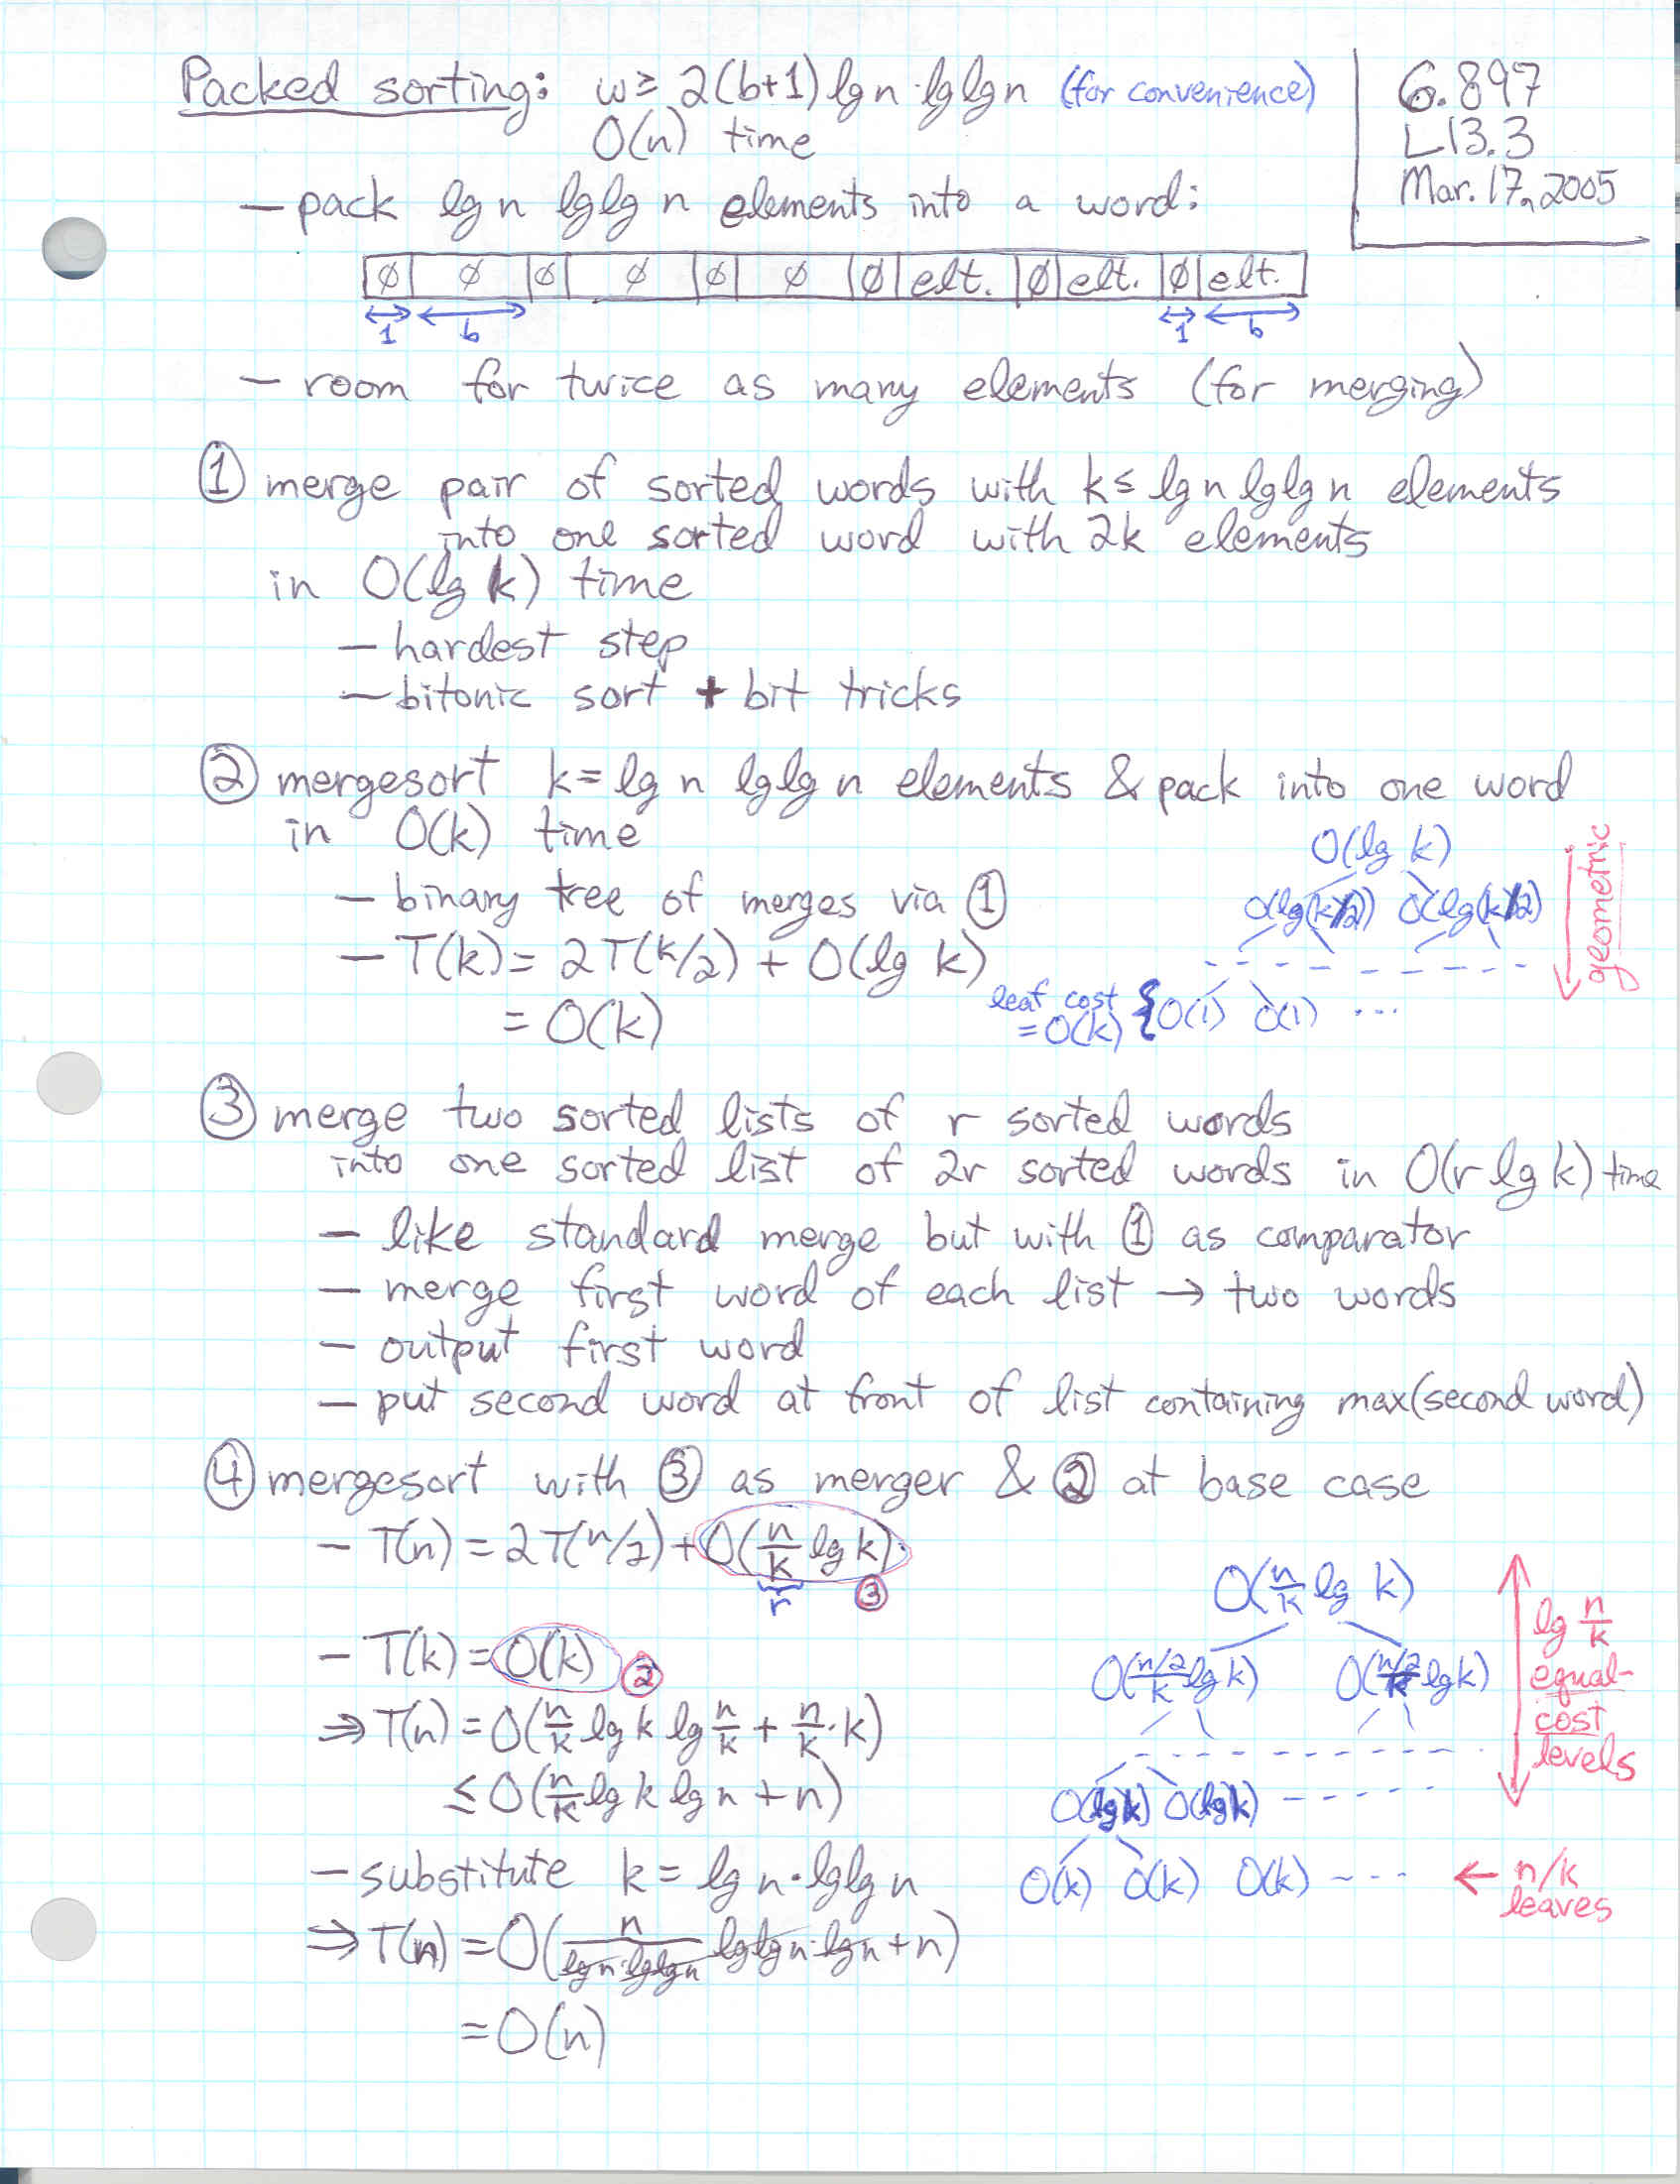 Packed sorting: w ≥ 2(b+1) lg n · lglg n (for convenience)
O(n) time
6.897
L13.3
Mar. 17, 2005
— pack lg n lglg n elements into a word:
∅ ∅ ∅ ∅ ∅ ∅ ∅ elt. ∅ elt. ∅ elt.
1 b 1 b
— room for twice as many elements (for merging)
① merge pair of sorted words with k ≤ lg n lglg n elements
into one sorted word with 2k elements
in O(lg k) time
— hardest step
— bitonic sort + bit tricks
② mergesort k = lg n lglg n elements & pack into one word
in O(k) time
— binary tree of merges via ①
— T(k) = 2T(k/2) + O(lg k)
= O(k)
O(lg k)
O(lg(k/2)) O(lg(k/2))
leaf cost
= O(k) { O(1) O(1) ...
geometric
③ merge two sorted lists of r sorted words
into one sorted list of 2r sorted words in O(r lg k) time
— like standard merge but with ① as comparator
— merge first word of each list → two words
— output first word
— put second word at front of list containing max(second word)
④ mergesort with ③ as merger & ② at base case
— T(n) = 2T(n/2) + O(n/k lg k)
r ③
— T(k) = O(k) ②
⇒ T(n) = O(n/k lg k lg n/k + n/k · k)
≤ O(n/k lg k lg n + n)
— substitute k = lg n · lglg n
⇒ T(n) = O(n/(lg n · lglg n) lglg n · lg n + n)
= O(n)
O(n/k lg k)
O((n/2)/k lg k) O((n/2)/k lg k)
O(lg k) O(lg k) - - - -
O(k) O(k) O(k) - - -
lg n/k
equal-
cost
levels
← n/k
leaves